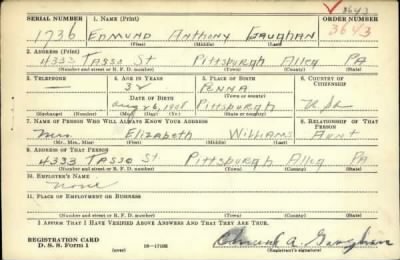 3643
SERIAL NUMBER 1. NAME (Print) ORDER NUMBER
1736 EDMUND Anthony Gaughan 3643
(First) (Middle) (Last)
2. ADDRESS (Print)
4333 TASSO St Pittsburgh Alleg PA
(Number and street or R. F. D. number) (Town) (County) (State)
3. TELEPHONE 4. AGE IN YEARS 5. PLACE OF BIRTH 6. COUNTRY OF CITIZENSHIP
— 32 PENNA
DATE OF BIRTH (Town or county)
Aug 26, 1908 Pittsburgh U. S. A.
(Exchange) (Number) (Mo.) (Day) (Yr.) (State or country)
7. NAME OF PERSON WHO WILL ALWAYS KNOW YOUR ADDRESS 8. RELATIONSHIP OF THAT PERSON
Mrs Elizabeth Williams Aunt
(Mr., Mrs., Miss) (First) (Middle) (Last)
9. ADDRESS OF THAT PERSON
4333 TASSO St Pittsburgh Alleg PA
(Number and street or R. F. D. number) (Town) (County) (State)
10. EMPLOYER'S NAME
None
11. PLACE OF EMPLOYMENT OR BUSINESS
(Number and street or R. F. D. number) (Town) (County) (State)
I AFFIRM THAT I HAVE VERIFIED ABOVE ANSWERS AND THAT THEY ARE TRUE.
REGISTRATION CARD
D. S. S. Form 1 (over) Edmund A. Gaughan
(Registrant's signature)